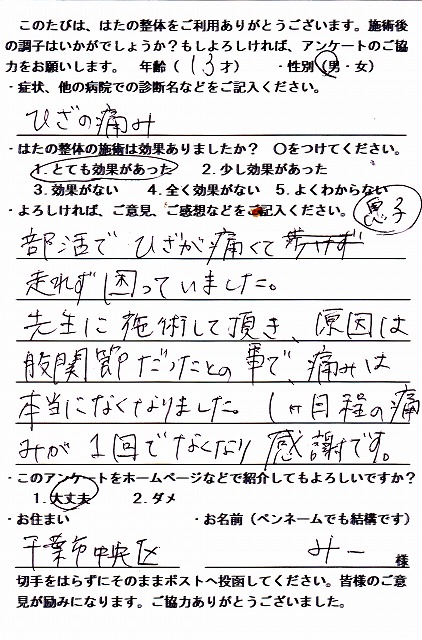 このたびは、はたの整体をご利用ありがとうございます。施術後
の調子はいかがでしょうか？もしよろしければ、アンケートのご協
力をお願いします。 年齢（ 13 才） ・性別（男・女）
・症状、他の病院での診断名などをご記入ください。
ひざの痛み
・はたの整体の施術は効果ありましたか？ ○をつけてください。
1. とても効果があった 2. 少し効果があった
3. 効果がない 4. 全く効果がない 5. よくわからない
・よろしければ、ご意見、ご感想などをご記入ください。
息子
部活でひざが痛くて歩けず
走れず困っていました。
先生に施術して頂き、原因は
股関節だったとの事で、痛みは
本当になくなりました。1ヶ月程の痛
みが1回でなくなり感謝です。
・このアンケートをホームページなどで紹介してもよろしいですか？
1. 大丈夫 2. ダメ
・お住まい ・お名前（ペンネームでも結構です）
千葉市中央区 みー 様
切手をはらずにそのままポストへ投函してください。皆様のご意
見が励みになります。ご協力ありがとうございました。